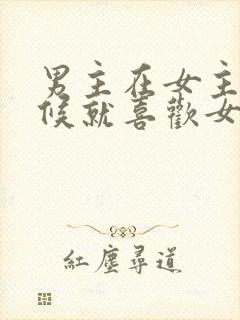 男主在女主
候就喜歡女
紅塵尋道